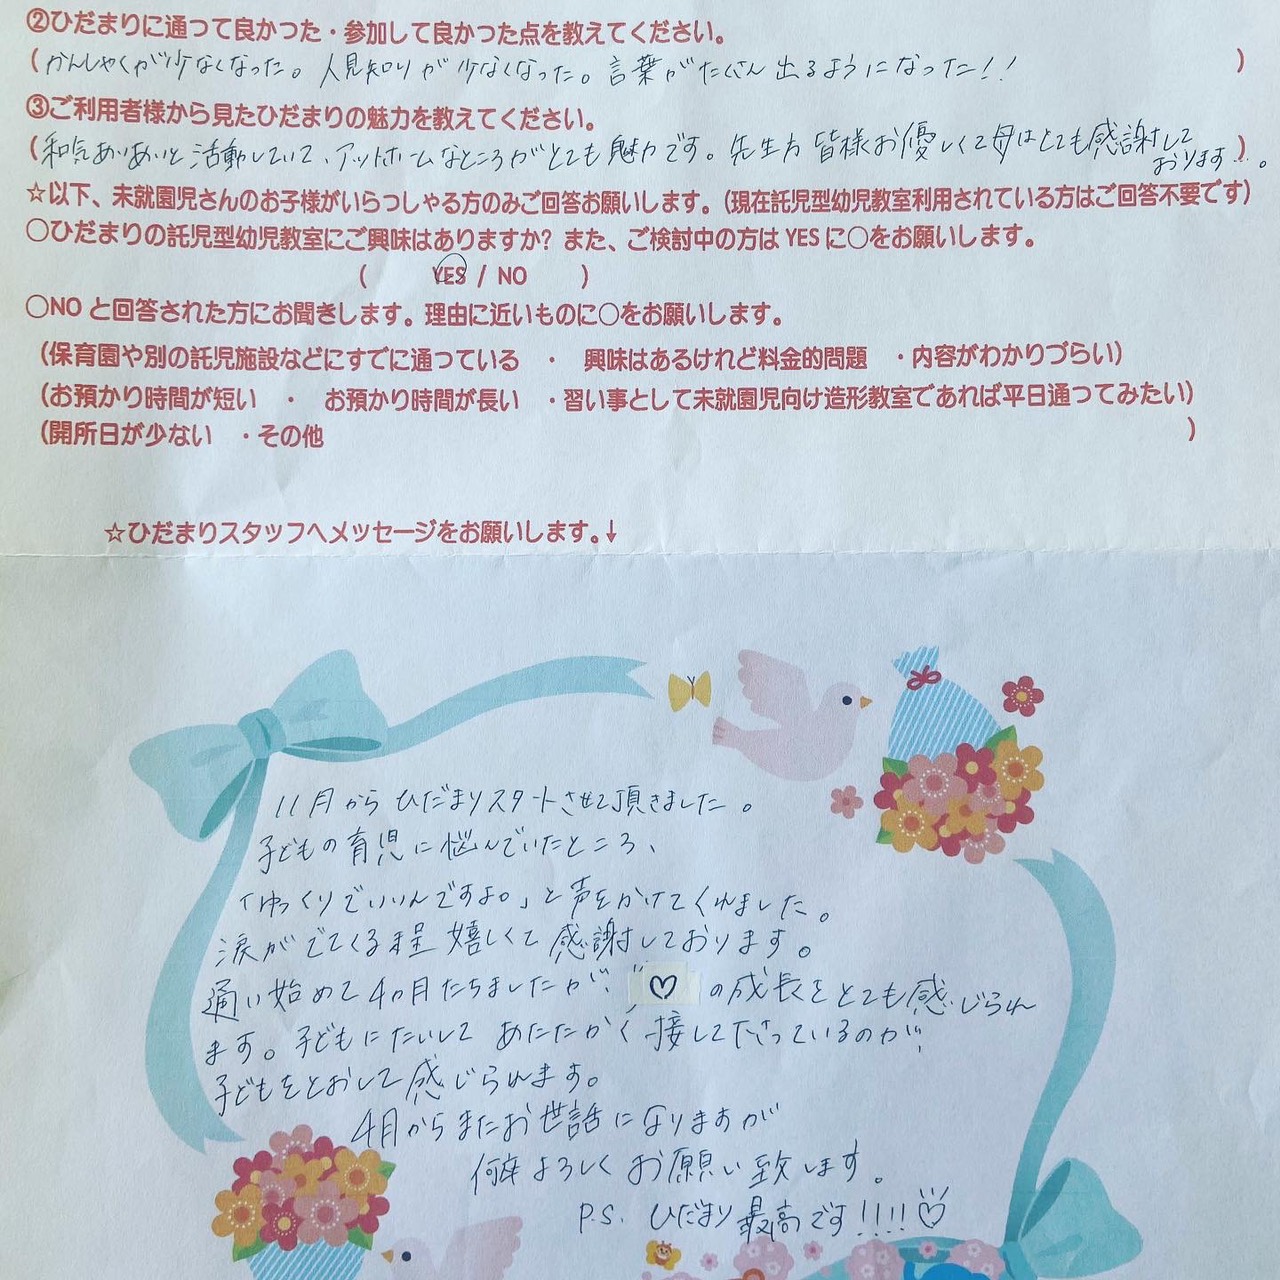 ②ひだまりに通って良かった・参加して良かった点を教えてください。
(かんしゃくが少なくなった。人見知りが少なくなった。言葉がたくさん出るようになった!!)
③ご利用者様から見たひだまりの魅力を教えてください。
(和気あいあいと活動していて、アットホームなところがとても魅力です。先生方皆様お優しくて母はとても感謝して
おります…。)
☆以下、未就園児さんのお子様がいらっしゃる方のみご回答お願いします。(現在託児型幼児教室利用されている方はご回答不要です)
○ひだまりの託児型幼児教室にご興味はありますか? また、ご検討中の方は YES に○をお願いします。
( YES / NO )
○NO と回答された方にお聞きします。理由に近いものに○をお願いします。
(保育園や別の託児施設などにすでに通っている ・ 興味はあるけれど料金的問題 ・内容がわかりづらい)
(お預かり時間が短い ・ お預かり時間が長い ・習い事として未就園児向け造形教室であれば平日通ってみたい)
(開所日が少ない ・その他 )
☆ひだまりスタッフへメッセージをお願いします。↓
11月からひだまりスタートさせて頂きました。
子どもの育児に悩んでいたところ、
「ゆっくりでいいんですよ。」と声をかけてくれました。
涙がでてくる程嬉しくて感謝しております。
通い始めて4ヵ月たちましたが、♡の成長をとても感じられ
ます。子どもにたいしてあたたかく接して下さっているのが、
子どもをとおして感じられます。
4月からまたお世話になりますが
何卒よろしくお願い致します。
P.S. ひだまり最高です!!!!♡